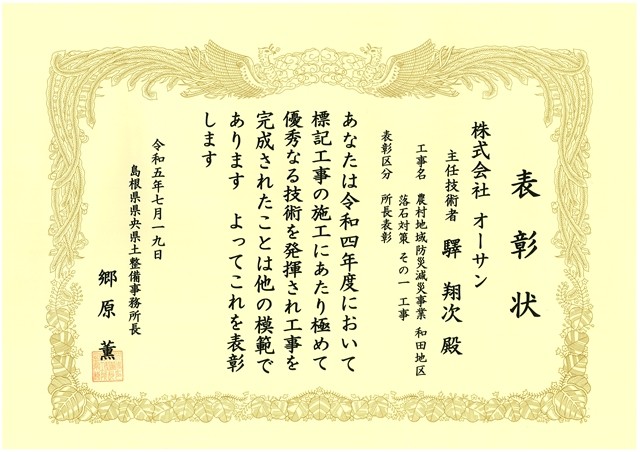 表彰状
株式会社 オーサン
主任技術者 驛 翔次 殿
工事名 農村地域防災減災事業 和田地区
落石対策 その一 工事
表彰区分 所長表彰
あなたは令和四年度において
標記工事の施工にあたり極めて
優秀なる技術を発揮され工事を
完成されたことは他の模範で
あります よってこれを表彰
します
令和五年七月一九日
島根県県央県土整備事務所長
郷原 薫